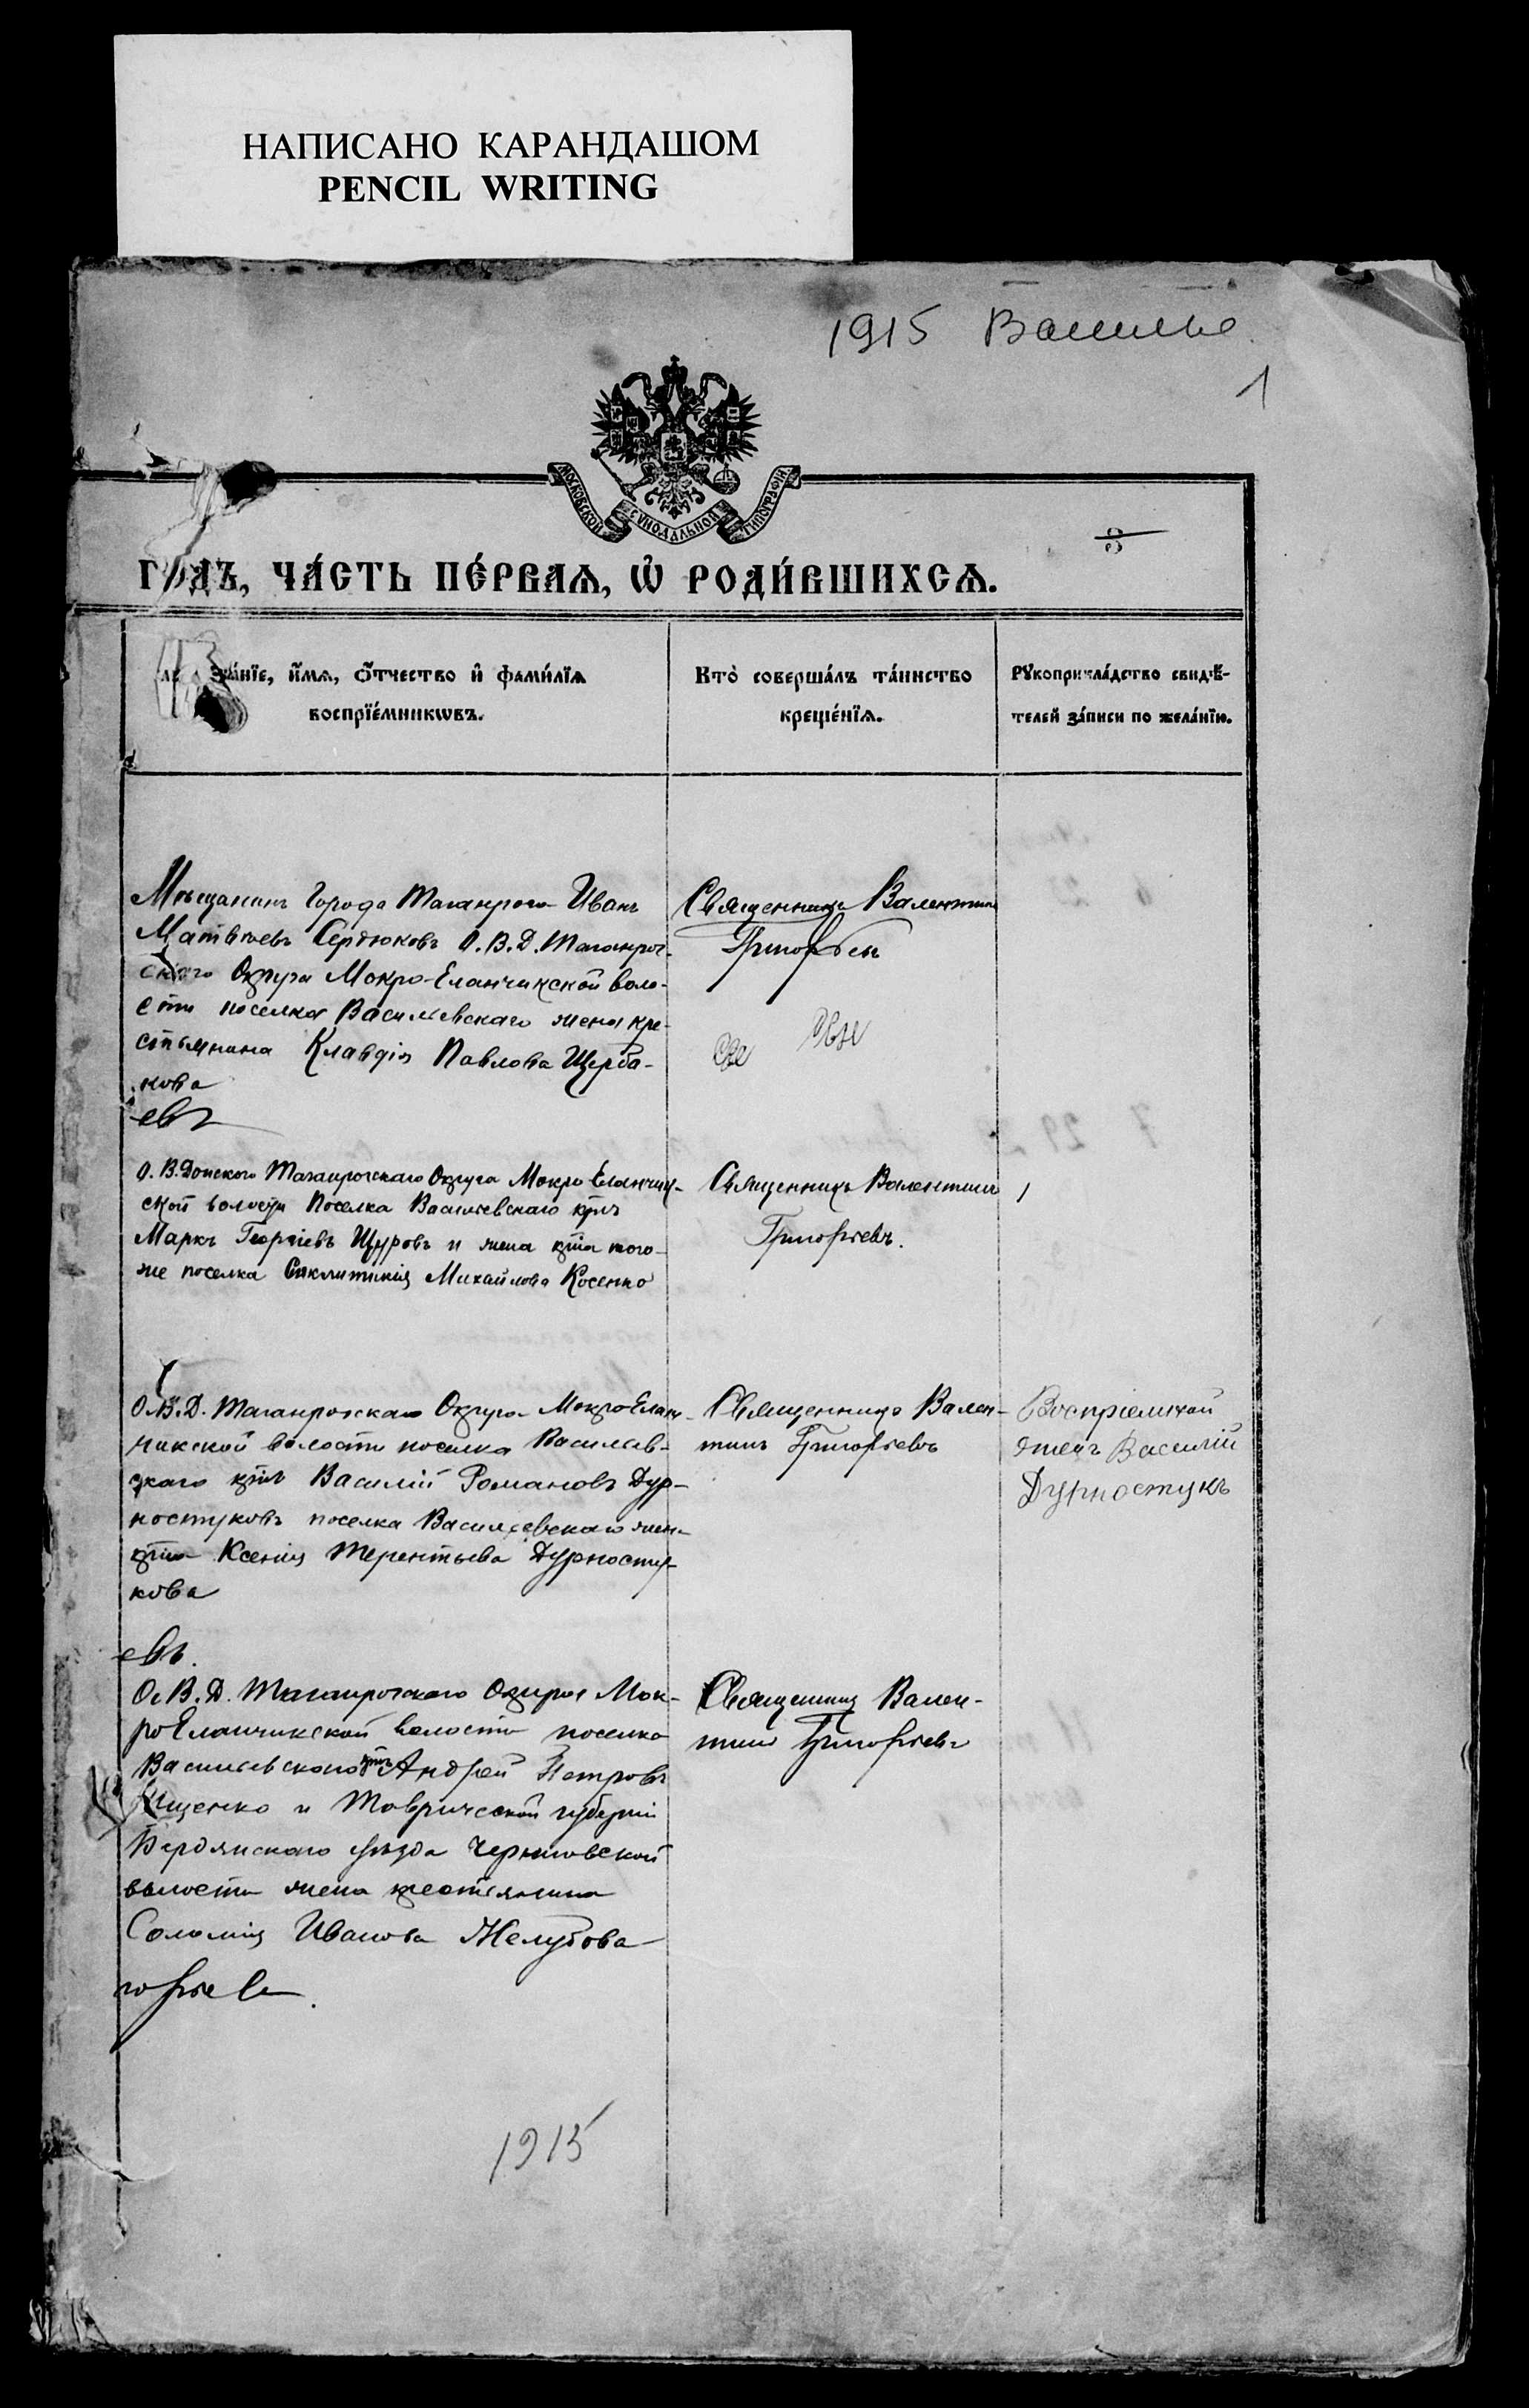 НАПИСАНО КАРАНДАШОМ
PENCIL WRITING
1915
1
МОСКОВСКОЙ СѴНОДАЛЬНОЙ ТИПОГРАФІИ
8
ГОДЪ, ЧА́СТЬ ПЕ́РВАѦ, Ѡ҆ РОДИ́ВШИХСѦ.
Зва́нїе, и҆́мѧ, ѻ҆́тчество и҆ фами́лїѧ
воспрїе́мникѡвъ.
Кто̀ соверша́лъ та́инство
креще́нїѧ.
Рꙋкоприкла́дство свидѣ́-
телей за́писи по жела́нїю.
Мѣщанинъ города Таганрога Иванъ
Матвѣевъ Сердюковъ О.В.Д. Таганрог-
скаго Округа Мокро-Еланчикской воло-
сти поселка Васильевскаго жена кре-
стьянина Клавдія Павлова Щерба-
кова
евъ
Священникъ Валентинъ
О.В.Донского Таганрогскаго Округа Мокро Еланчик-
ской волости Поселка Васильевскаго крнъ
Маркъ Георгіевъ Щуровъ и жена крна того-
же поселка Михайлова Косенко
Священникъ Валентинъ
Григорьевъ.
О.В.Д. Таганрогскаго Округа Мокро-Елан-
чикской волости поселка Васильев-
скаго крнъ Василій Романовъ Дур-
ностуковъ поселка Васильевскаго жен-
крна Ксенія Терентьева Дурносту-
кова
Священникъ Вален-
тинъ Григорьевъ
Василій
Дурностукъ
евъ.
О.В.Д. Таганрогскаго Округа Мок-
ро Еланчикской волости поселка
Васильевскаго крнъ Андрей Петровъ
Ищенко и Таврической губерніи
Бердянскаго уѣзда Черниговской
волости жена крестьянина
Соломія Иванова Желубова
Священникъ Вален-
тинъ Григорьевъ
горьев
1915